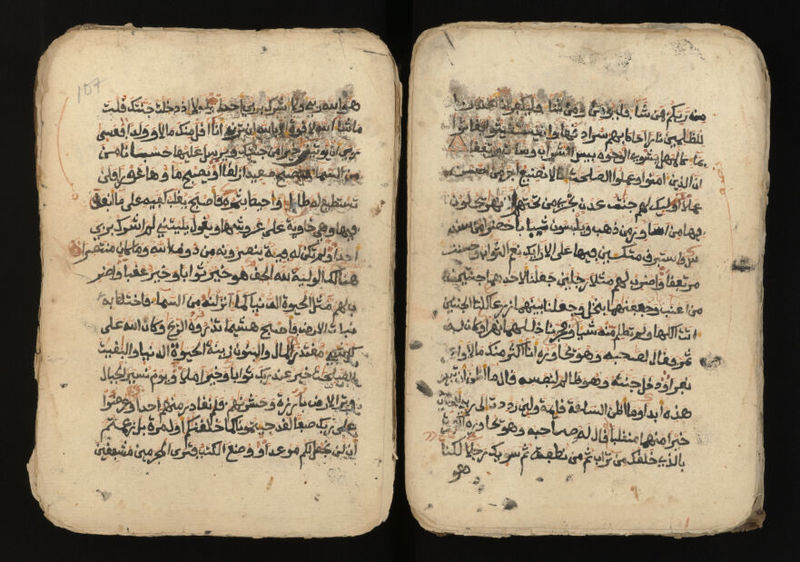 من ربكم فمن شا فليومن ومن شا فليكفر انا اعتدنا
للظلمين نارا احاط بهم سرادقها وان يستغيثوا يغاثوا
بما كالمهل يشوي الوجوه بيس الشراب وسات مرتفقا
ان الذين امنوا وعملوا الصلحت انا لا نضيع اجر من احسن
عملا اوليك لهم جنت عدن تجري من تحتهم الانهر يحلون
فيها من اساور من ذهب ويلبسون ثيابا خضرا من سند
س واستبرق متكين فيها على الارايك نعم الثواب وحسنت
مرتفقا واضرب لهم مثلا رجلين جعلنا لاحدهما جنتين
من اعنب وحففنهما بنخل وجعلنا بينهما زرعا كلتا الجنتين
اتت اكلها ولم تظلم منه شيا وفجرنا خللهما نهرا وكان له
ثمر فقال لصحبه وهو يحاوره انا اكثر منك مالا واعز
نفرا ودخل جنته وهو ظالم لنفسه قال ما اظن ان تبيد
هذه ابدا وما اظن الساعة قايمة ولين رددت الى ربي لاجدن
خيرا منها منقلبا قال له صاحبه وهو يحاوره اكفرت
بالذي خلفك من تراب ثم من نطفة ثم سويك رجلا لكنا
هو
107
هو الله ربي ولا اشرك بربي احدا ولولا اذ دخلت جنتك قلت
ما شا الله لا قوة الا بالله ان ترن انا اقل منك مالا وولدا فعسى
ربي ان يوتين خيرا من جنتك ويرسل عليها حسبانا من
من السما فتصبح صعيدا زلفا او يصبح ماوها غورا فلن
تستطيع له طلبا واحيط بثمره فاصبح يقلب كفيه على ما انفق
فيها وهي خاوية على عروشها ويقول يليتني لم اشرك بربي
احدا ولم تكن له فية ينصرونه من دون الله وما كان منتصرا
هنالك الولية لله الحق هو خير ثوابا وخير عقبا واضر
ب لهم مثل الحيوة الدنيا كما انزلنه من السما فاختلط به
نبات الارض فاصبح هشيما تذروه الريح وكان الله على
كل شي مقتدرا المال والبنون زينة الحيوة الدنيا والبقيت
الصلحت خير عند ربك ثوابا وخير املا ويوم نسير الجبال
وترى الارض بارزة وحشرنهم فلم نغادر منهم احدا وعرضوا
على ربك صفا لقد جيتمونا كما خلقنكم اول مرة بل زعمتم
ان لن نجعل لكم موعدا ووضع الكتب فترى المجرمين مشفقين